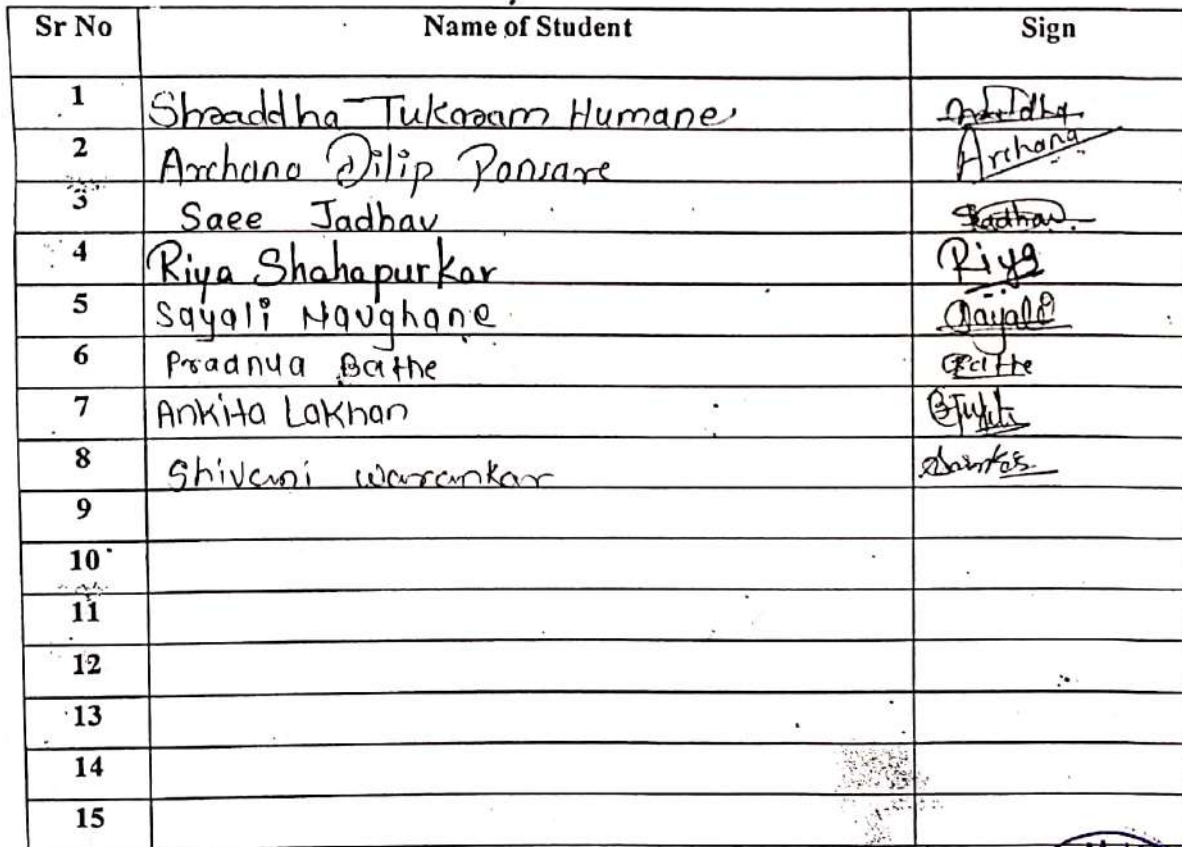 Sr No Name of Student Sign
1 Shraddha Tukaram Humane
2 Archana Dilip Pansare Archana
3 Saee Jadhav Jadhav
4 Riya Shahapurkar Riya
5 Sayali Navghane Sayali
6 Pradnya Bathe Bathe
7 Ankita Lakhan
8 Shivani Warankar
9
10
11
12
13
14
15